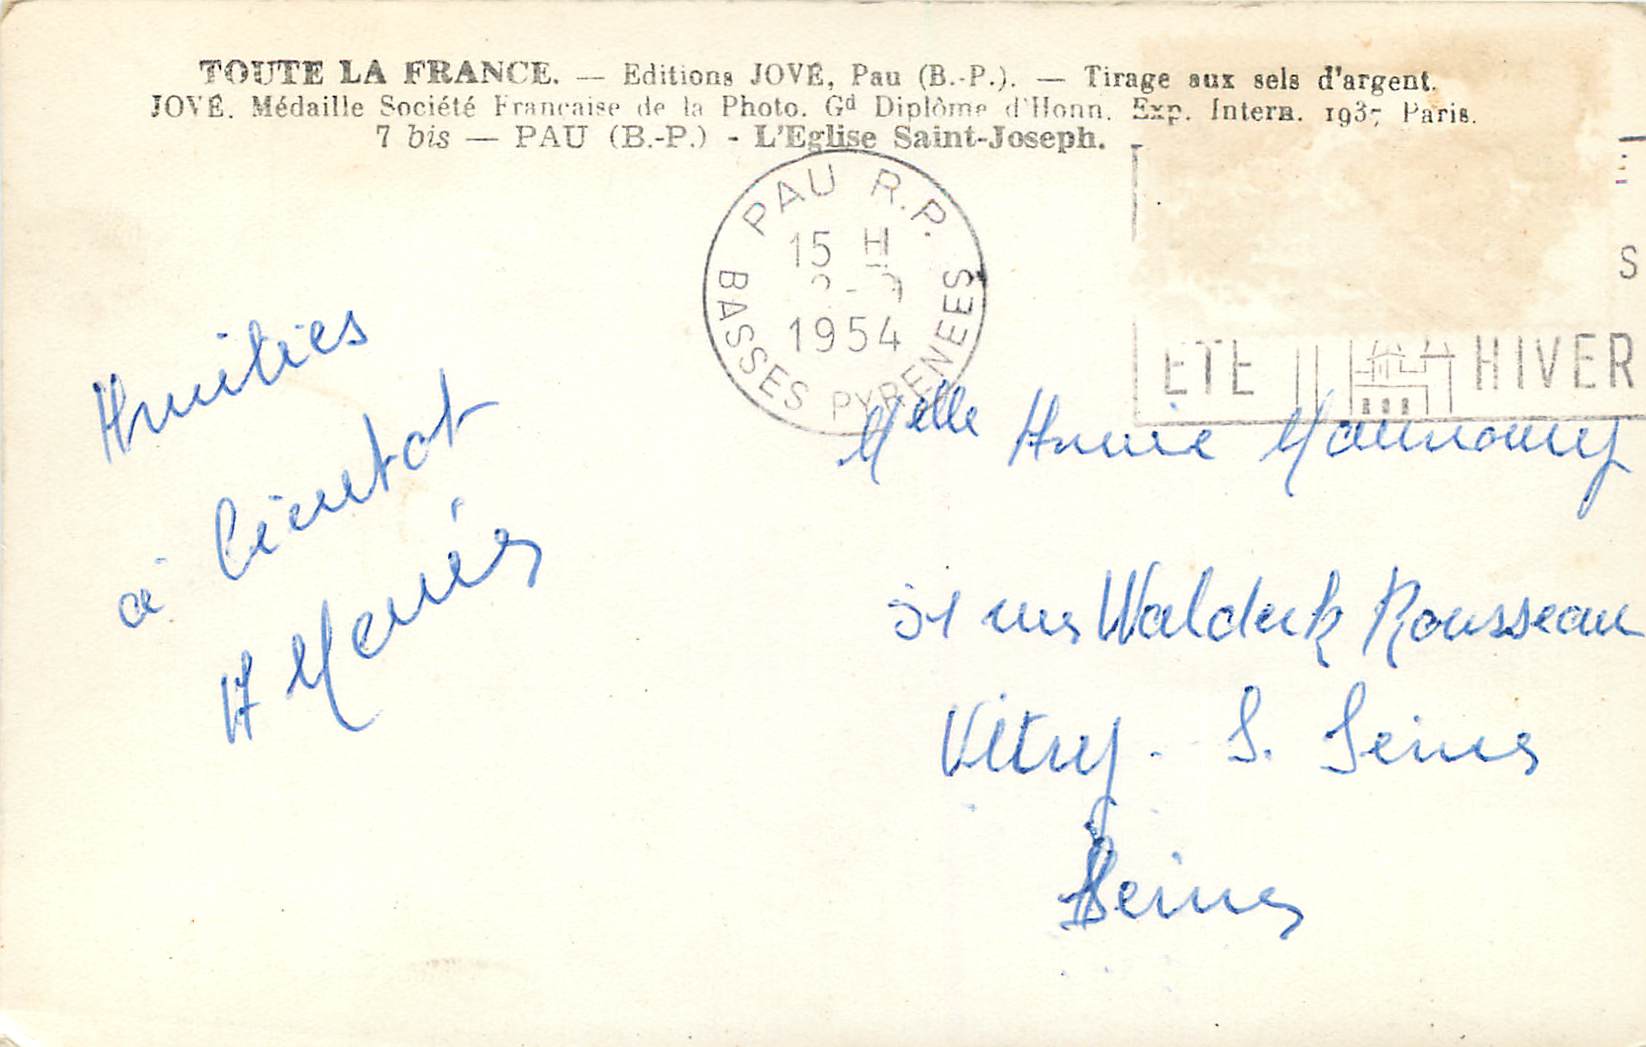 TOUTE LA FRANCE. — Editions JOVÉ, Pau (B.-P.). — Tirage aux sels d'argent.
JOVÉ. Médaille Société Française de la Photo. Gd Diplôme d'Honn. Exp. Intern. 1937 Paris.
7 bis — PAU (B.-P.) - L'Eglise Saint-Joseph.
PAU R.P.
15 H
1954
BASSES PYRENEES
S
ETE HIVER
Amitiés
à bientot
Melle Annie
51 rue Waldeck Rousseau
Vitry. S. Seine
Seine